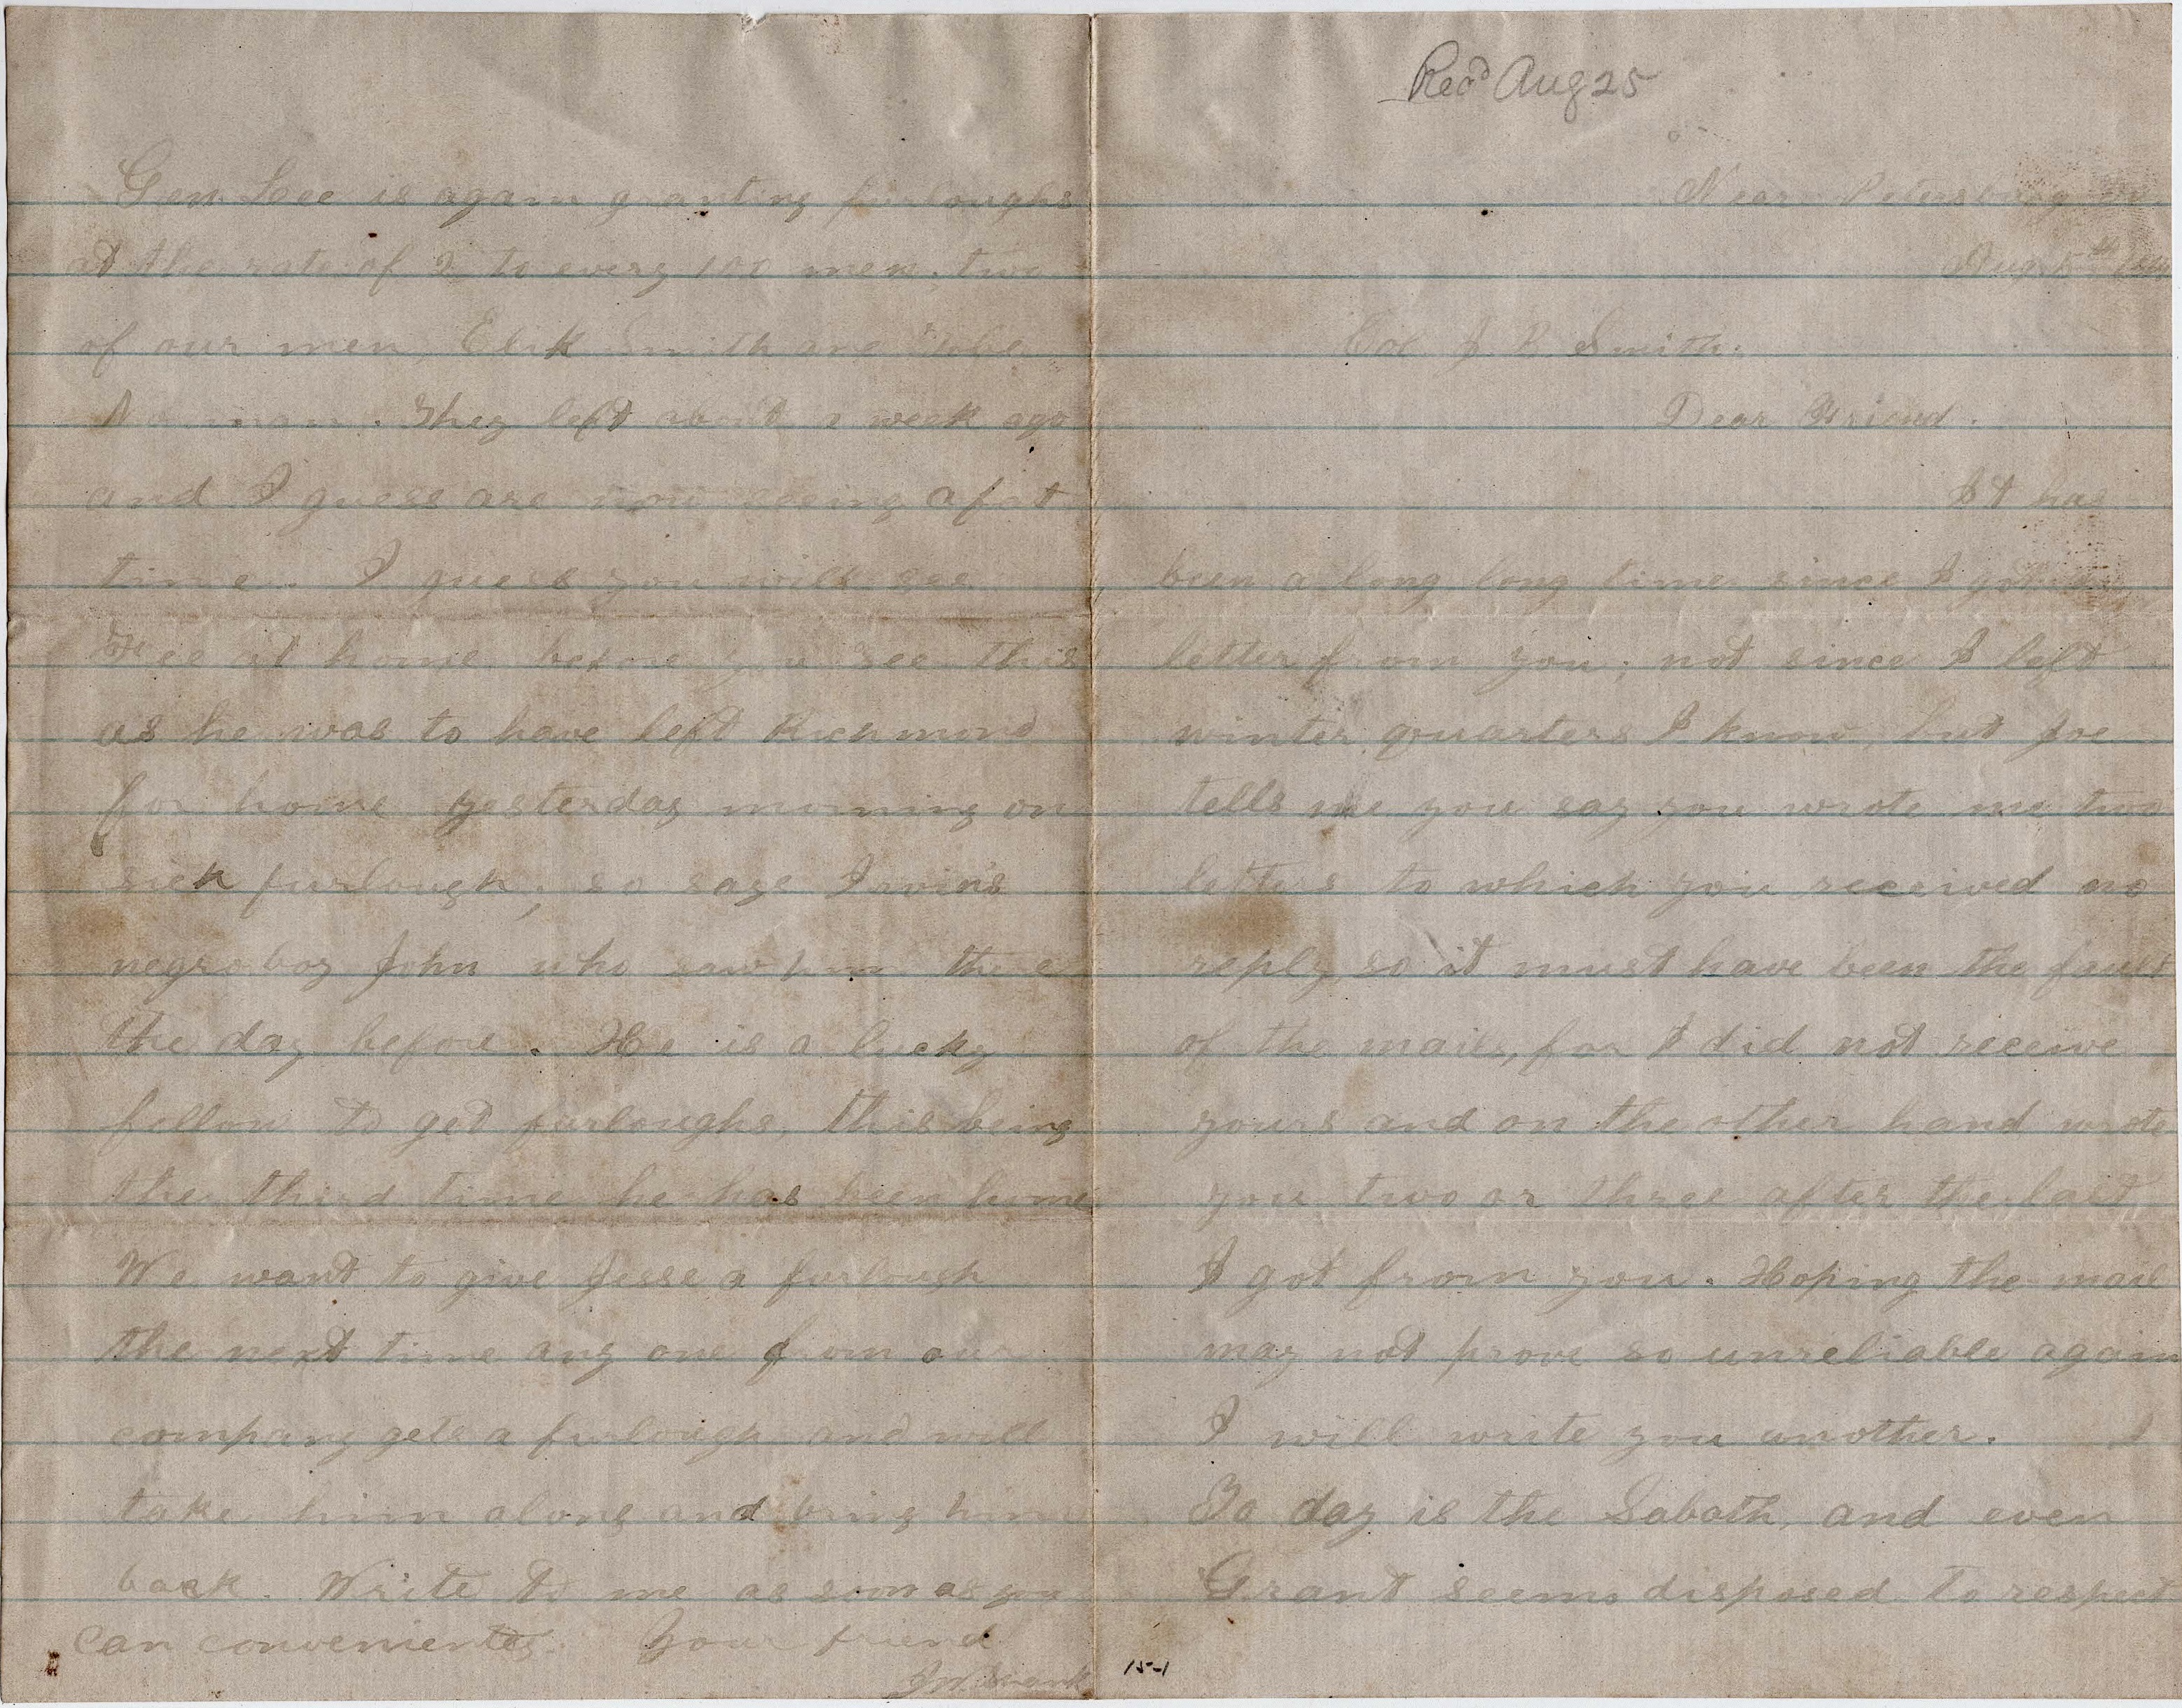 Recd Aug 25
Near Petersburg
Aug 5th
Col J. P. Smith.
Dear Friend.
It has
been a long long time since I
letter from you; not since I left
winter quarters I know, but Joe
tells me you say you wrote me two
letters to which you received no
reply, so it must have been the fault
of the mails, for I did not receive
yours and on the other hand wrote
you two or three after the last
I got from you. Hoping the mail
may not prove so unreliable again
I will write you another. I
To day is the Sabath, and even
Grant seems disposed to respect
15-1
Gen Lee is again granting furloughs
at the rate of 2 to every 100 men, two
of our men, Elik Smith and
Norman. They left about a week ago
and I guess are now seeing a fat
time. I guess you will see
at home before you see this
as he was to have left Richmond
for home yesterday morning on
sick furlough, so says Irvin's
negro boy John who saw him there
the day before. He is a lucky
fellow to get furloughs, this being
the third time he has been home
We want to give Jesse a furlough
the next time any one from our
company gets a furlough and will
take him along and bring him
back. Write to me as soon as you
can conveniently. Your friend